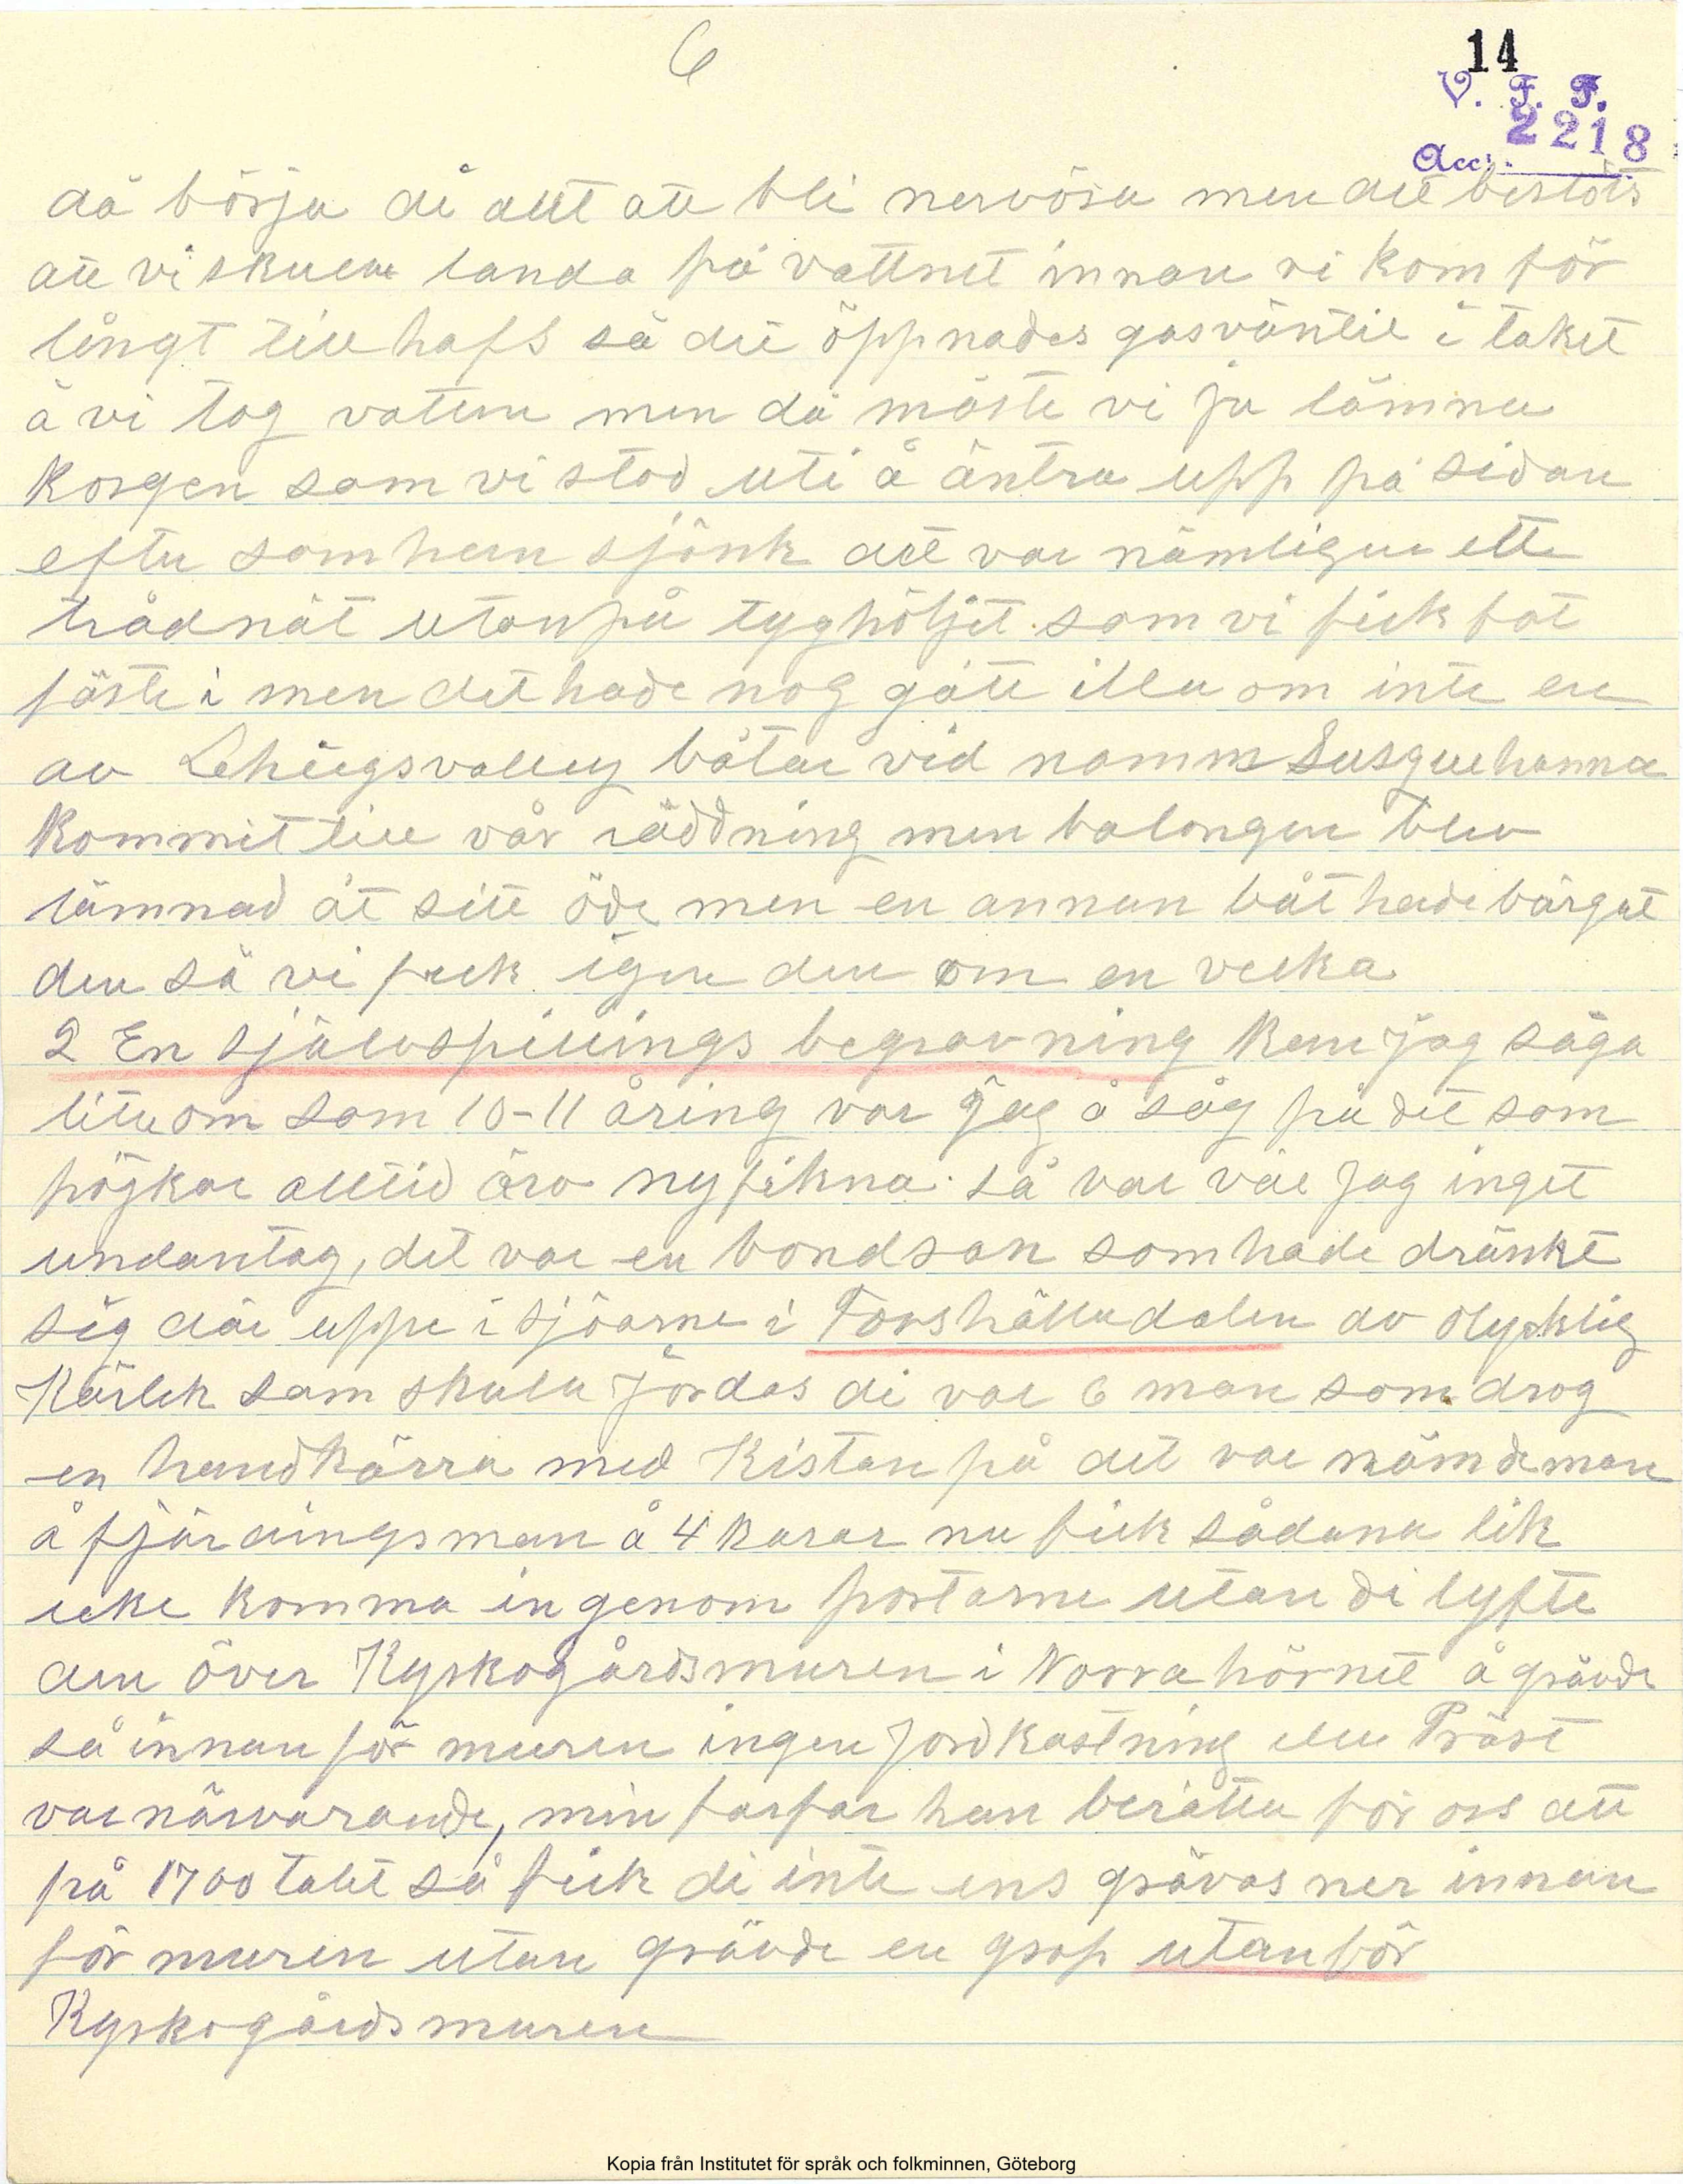 6
14
V. F. F.
2218
Acc:
då börja di allt att bli nervösa men det beslöts
att vi skulle landa på vattnet innan vi kom för
långt till hafs så det öppnades gasväntil i taket
å vi tog vatten men då måste vi ju lämna
Korgen som vi stod uti å äntra upp på sidan
efter som han sjönk det var nämligen ett
trådnät utanpå tyghöljet som vi fick fot
fäste i men det hade nog gått illa om inte en
av Lehiigsvalley båtar vid namm Susquehanna
Kommit till vår räddning men balongen blev
lämnad åt sitt öde men en annan båt hade bärgat
den så vi feck igen den om en vecka
2 En självspillings begravning Kan jag säga
lite om som 10-11 åring var jag å såg på det som
pojkar alltid äro nyfikna så var väl Jag inget
undantag, det var en bondson som hade dränkt
sig där uppe i sjöarne i Forshälladalen av olycklig
Kärlek som skulle jordas di var 6 man som drog
en handkärra med Kistan på det var nämdeman
å fjärdingsman å 4 Karar nu fick sådana lik
icke komma in genom portarne utan di lyfte
den över Kyrkogårdsmuren i Norra hörnet å grävde
så innan för muren ingen Jordkastning eller Präst
var närvarande, min farfar han berätta för oss att
på 1700 talet så fick di inte ens grävas ner innan
för muren utan grävde en grop utanför
Kyrkogårdsmuren
Kopia från Institutet för språk och folkminnen, Göteborg